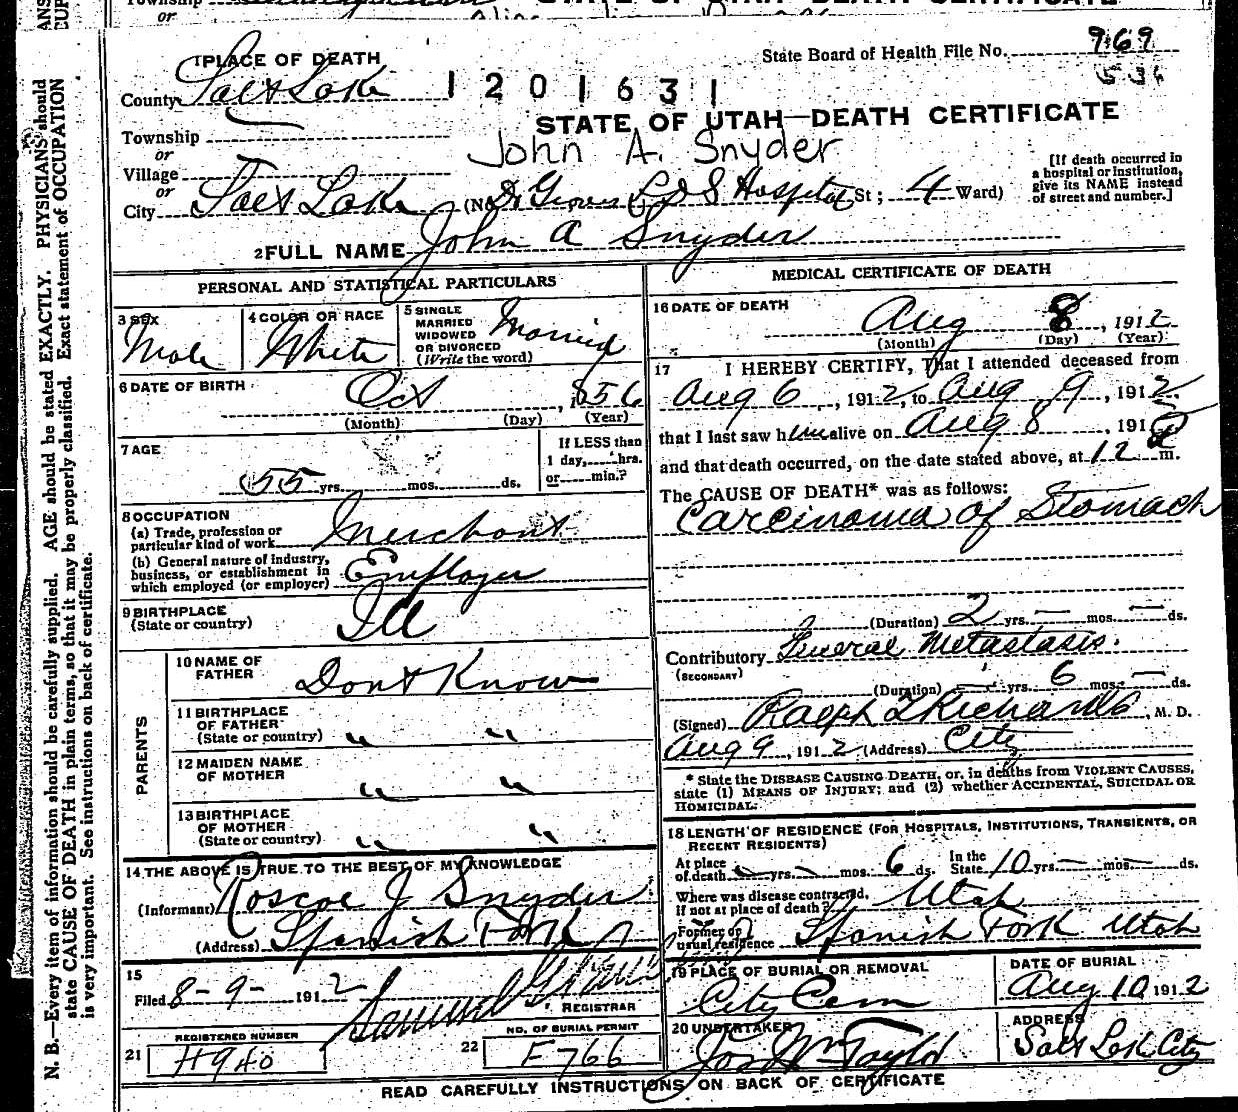 Township
or
STATE OF UTAH—DEATH CERTIFICATE
1PLACE OF DEATH
State Board of Health File No. 969
536
County Salt Lake
1201631
STATE OF UTAH—DEATH CERTIFICATE
Township
or
John A. Snyder
Village
or
City Salt Lake (No. L D S Hospital St; 4 Ward)
[If death occurred in
a hospital or institution,
give its NAME instead
of street and number.]
2FULL NAME John A Snyder
PERSONAL AND STATISTICAL PARTICULARS
3 SEX
Male
4 COLOR OR RACE
White
5 SINGLE
MARRIED
WIDOWED
OR DIVORCED
(Write the word)
Married
6 DATE OF BIRTH
Oct , 1856
(Month) (Day) (Year)
7 AGE
55 yrs. mos. ds.
If LESS than
1 day, hrs.
or min.?
8 OCCUPATION
(a) Trade, profession or
particular kind of work Merchant
(b) General nature of industry,
business, or establishment in
which employed (or employer) Employer
9 BIRTHPLACE
(State or country) Ill
PARENTS
10 NAME OF
FATHER Dont Know
11 BIRTHPLACE
OF FATHER
(State or country) " "
12 MAIDEN NAME
OF MOTHER " "
13 BIRTHPLACE
OF MOTHER
(State or country) " "
14 THE ABOVE IS TRUE TO THE BEST OF MY KNOWLEDGE
(Informant) Roscoe J Snyder
(Address) Spanish Fork
15
Filed 8-9- 1912 Samuel
REGISTRAR
REGISTERED NUMBER
21 H940
NO. OF BURIAL PERMIT
22 F766
MEDICAL CERTIFICATE OF DEATH
16 DATE OF DEATH
Aug 8, 1912
(Month) (Day) (Year)
17 I HEREBY CERTIFY, That I attended deceased from
Aug 6, 1912, to Aug 9, 1912
that I last saw him alive on Aug 8, 1912
and that death occurred, on the date stated above, at 12 m.
The CAUSE OF DEATH* was as follows:
Carcinoma of Stomach
(Duration) 2 yrs. — mos. — ds.
Contributory General Metastasis.
(SECONDARY)
(Duration) — yrs. 6 mos. — ds.
(Signed) Ralph T Richards, M. D.
Aug 9, 1912 (Address) City
* State the DISEASE CAUSING DEATH, or, in deaths from VIOLENT CAUSES,
state (1) MEANS OF INJURY; and (2) whether ACCIDENTAL, SUICIDAL OR
HOMICIDAL.
18 LENGTH OF RESIDENCE (FOR HOSPITALS, INSTITUTIONS, TRANSIENTS, OR
RECENT RESIDENTS)
At place
of death — yrs. — mos. 6 ds. In the
State 10 yrs. — mos. — ds.
Where was disease contracted,
if not at place of death? Utah
Former or
usual residence Spanish Fork Utah
19 PLACE OF BURIAL OR REMOVAL
City Cem
DATE OF BURIAL
Aug 10 1912
20 UNDERTAKER
Jos Wm Taylor
ADDRESS
Salt Lak City
READ CAREFULLY INSTRUCTIONS ON BACK OF CERTIFICATE
N. B.—Every item of information should be carefully supplied. AGE should be stated EXACTLY. PHYSICIANS should
state CAUSE OF DEATH in plain terms, so that it may be properly classified. Exact statement of OCCUPATION
is very important. See instructions on back of certificate.